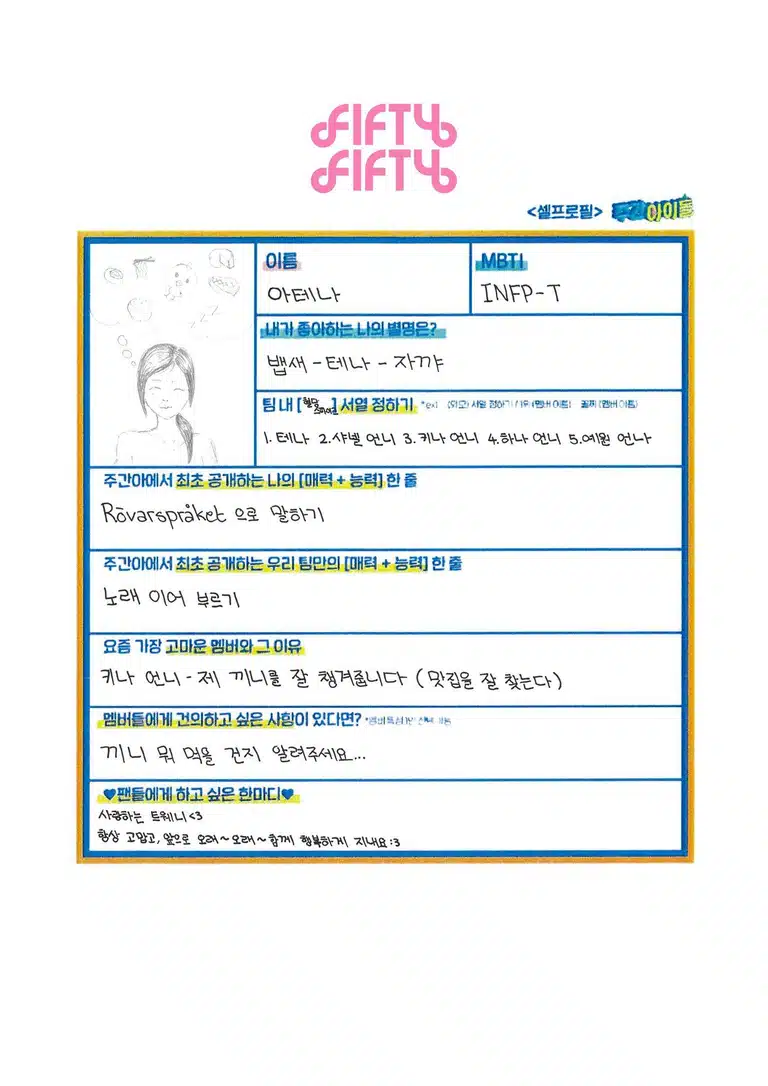 FIFTY
FIFTY
<셀프로필> 주간아이돌
이름
아테나
MBTI
INFP-T
내가 좋아하는 나의 별명은?
뱁새 - 테나 - 자까
팀 내 [ ] 서열 정하기 *ex) (외모) 서열 정하기 / 1위 (멤버 이름) 꼴찌 (멤버 이름)
1. 테나 2.샤넬 언니 3. 키나 언니 4.하나 언니 5.예원 언니
주간아에서 최초 공개하는 나의 [매력 + 능력] 한 줄
Rövarspråket 으로 말하기
주간아에서 최초 공개하는 우리 팀만의 [매력 + 능력] 한 줄
노래 이어 부르기
요즘 가장 고마운 멤버와 그 이유
키나 언니 - 제 끼니를 잘 챙겨줍니다 (맛집을 잘 찾는다)
멤버들에게 건의하고 싶은 사항이 있다면?
끼니 뭐 먹을 건지 알려주세요...
♥팬들에게 하고 싶은 한마디♥
사랑하는 트웨니 <3
항상 고맙고, 앞으로 오래~오래~ 함께 행복하게 지내요 :3
zzz